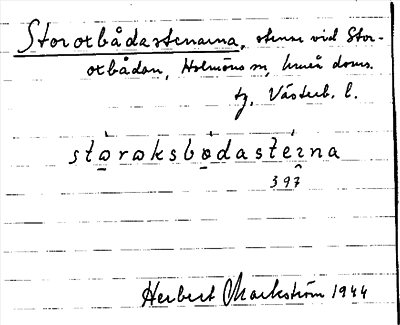 Storoxbådastenarna, stenar vid Stor-
oxbådan, Holmöns sn, Umeå doms.
tg, Västerb. l.
storoksbodasteṛna
397
Herbert Markström 1944